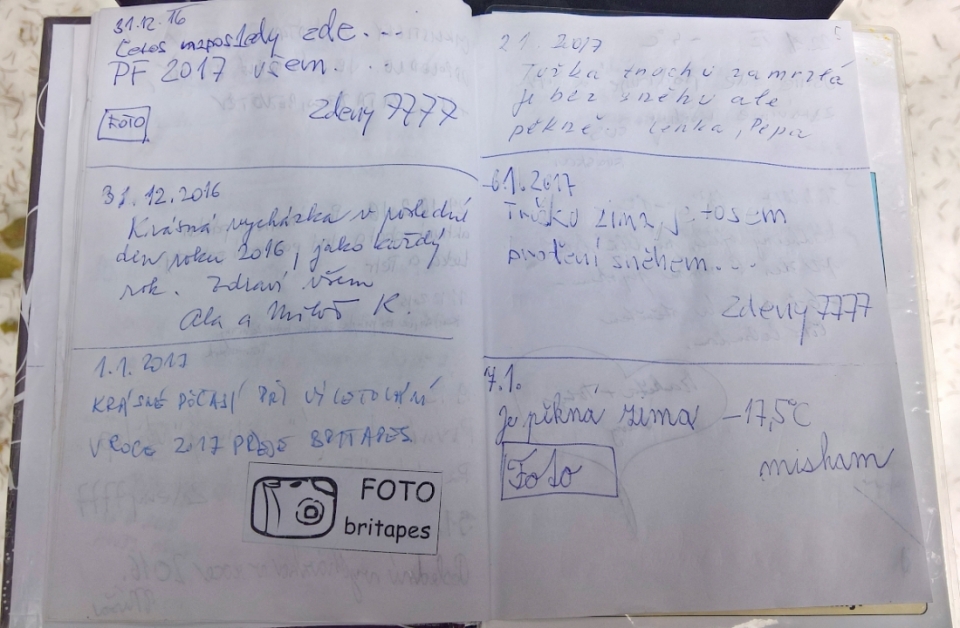 31.12.16
Letos naposledy zde...
PF 2017 všem..
FOTO
Zdeny7777
31.12.2016
Krásná vycházka v poslední
den roku 2016, jako každý
rok. Zdraví všem
Ala a Miloš K.
1.1.2017
KRÁSNÉ POČASÍ PŘI VÝLOTOLOVÁNÍ
V ROCE 2017 PŘEJE BRITAPES
FOTO
britapes
2.1. 2017
Tuška trochu zamrzlá
je bez sněhu ale
pěkně Lenka, Pepa
6.1.2017
Trošku zima, jetosem
sněhem...
Zdeny7777
7.1.
Je pěkná zima -17,5°C
Foto
misham